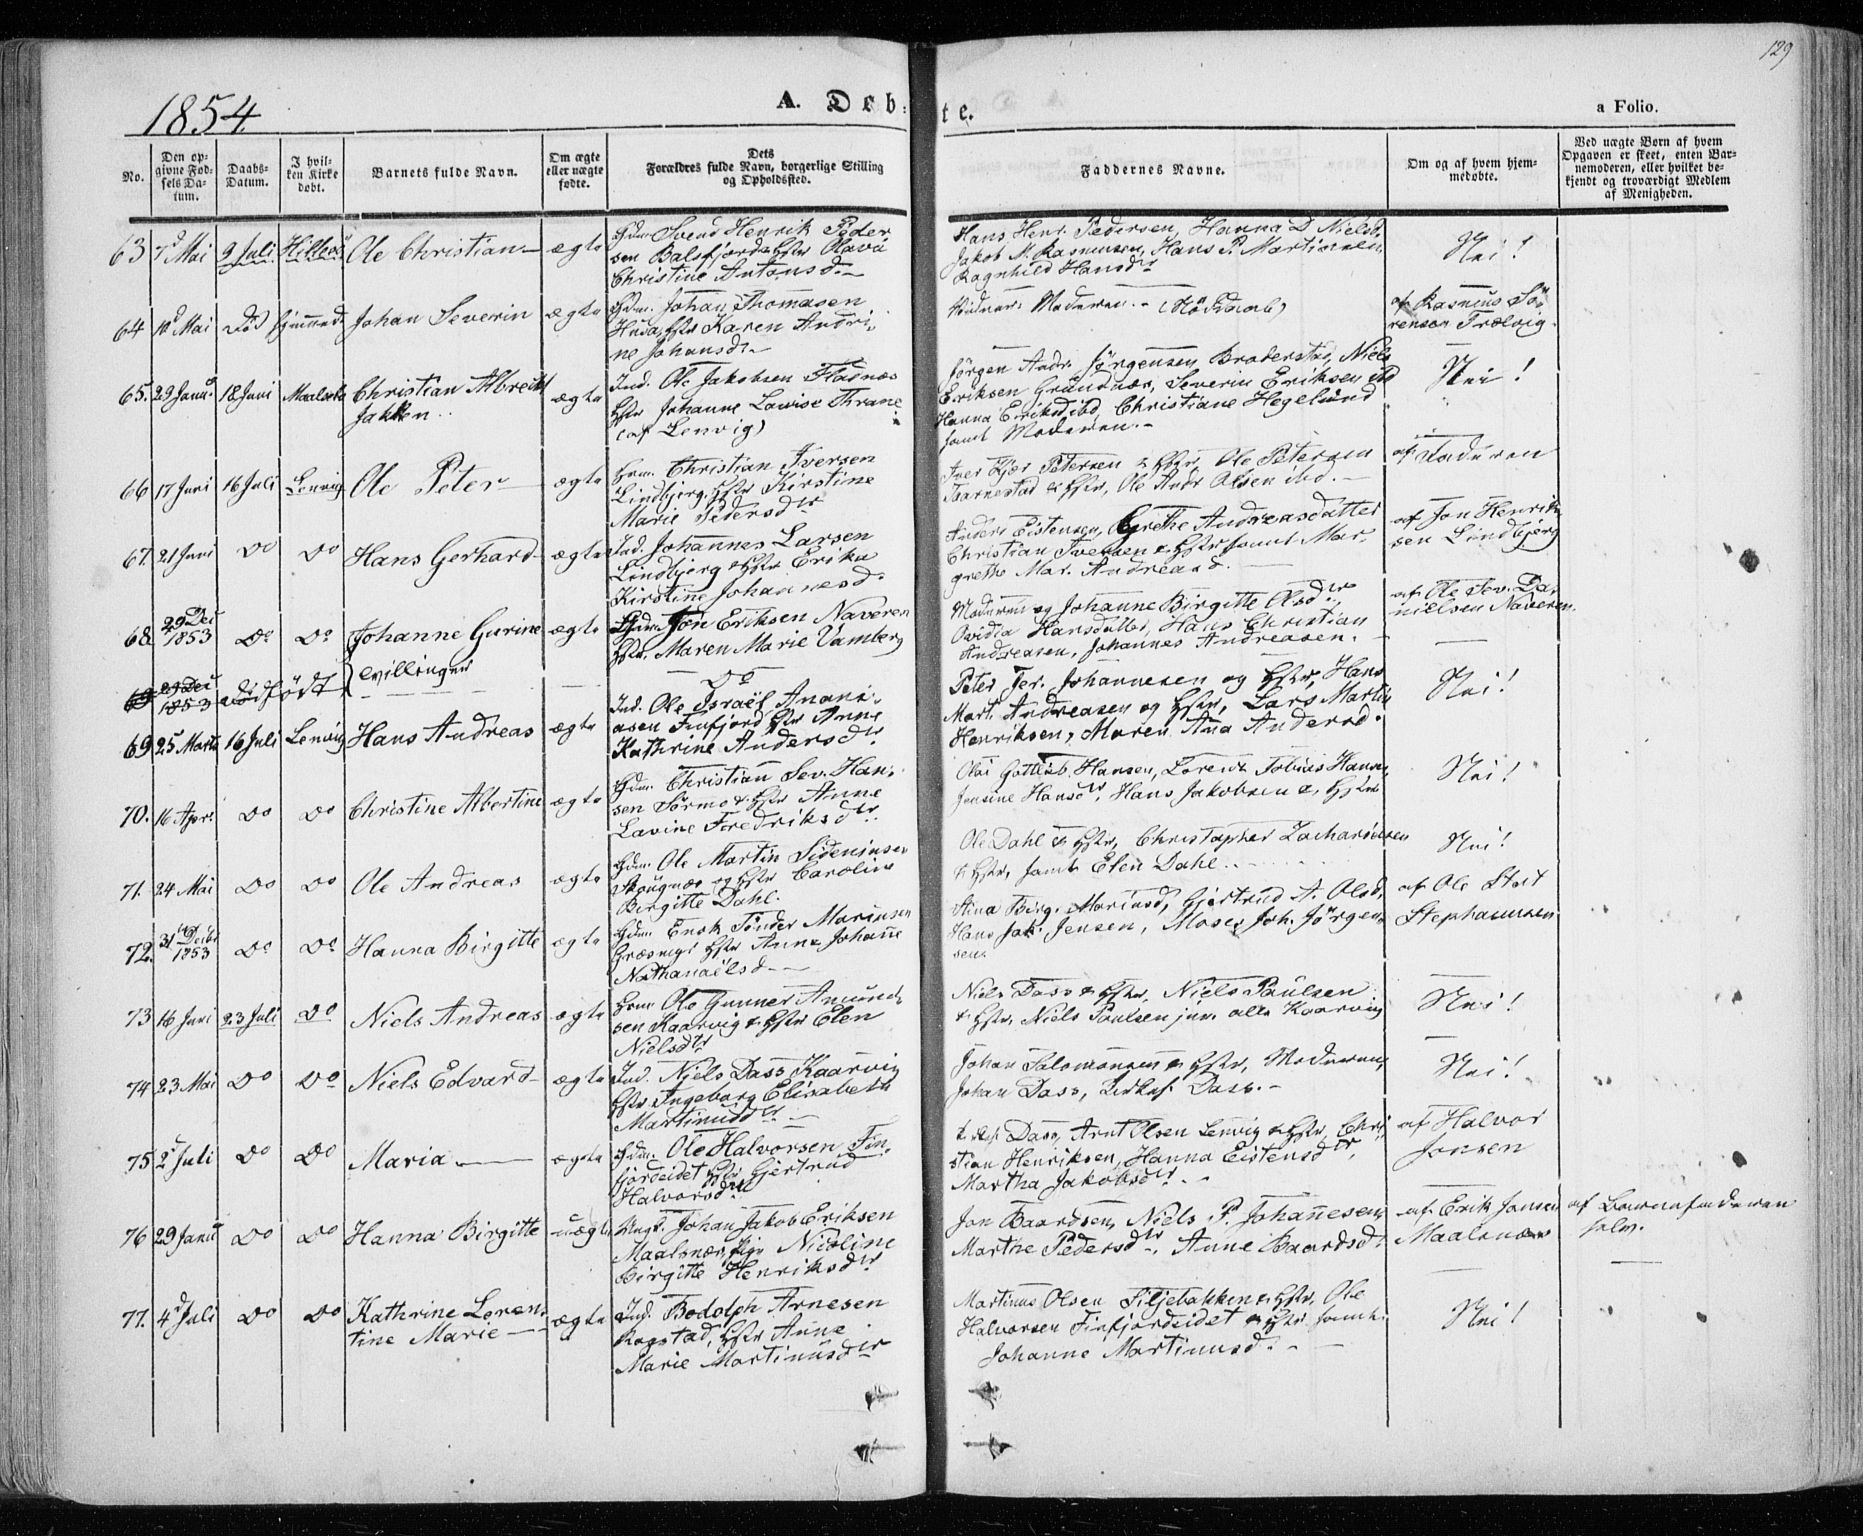 129
1854
A. Døbte.
a Folio.
No.
Den opgivne Fødsels Datum.
Daabs-Datum.
I hvilken Kirke døbt.
Barnets fulde Navn.
Om ægte eller uægte fødte.
Dets Forældres fulde Navn, borgerlige Stilling og Opholdssted.
Faddernes Navne.
Om og af hvem hjemmedøbte.
Ved uægte Børn af hvem Opgaven er skeet, enten Barnemoderen, eller hvilket bekjendt og troværdigt Medlem af Menigheden.
63 7d Mai 9 Juli Hillesö Ole Christian ægte
Gdm. Svend Henrik Peder
sen Balsfjord & Hstr Olava
Christine Antonsd.
Hans Henr. Pedersen, Hanna D Nielsd,
Jakob M. Rasmussen, Hans P. Martinsen
Ragnhild Hansdtr
Nei!
64 10d Mai Död hjemmed Johan Severin ægte
Gdm. Johan Thomasen
Husa, Hstr Karen Andri-
ne Johansd.
Moderen (Nöddaab)
af Rasmus Sö-
rensen Trælvig
65. 29 Janu 18 Juni Maalselv Christian Albrecht
Jakken ægte
Ind. Ole Jakobsen Fladnæs
Hstr Johanne Lovise Krane
(af Lenvig)
Jörgen Andr. Jörgensen Broderstad, Niels
Eriksen Grundnæs, Severin Eriksen ibd
Hanna Eriksd ibd, Christiane Hegelund
samt Moderen.
Nei!
66 17 Juni 16 Juli Lenvig Ole Peter ægte
Christian Iversen
Lindbjerg, Hstr Kirstine
Marie Pedersdtr
Iver Kjær Petersen & Hstr, Ole Petersen
& Hstr, Ole Andr Olsen ibd.
af Faderen
67. 21 Juni Do Do Hans Gerhard ægte
Ind. Johannes Larsen
Lindbjerg & Hstr Erika
Kirstine Johannesd.
Anders Eistensen, Grethe Andreasdatter
Christian Iversen & Hstr samt Mar-
grethe Mar. Andreasd.
af Jon Henrik
sen Lindbjerg
68 29 Dec 1853 Do Do Johanne Gurine ægte
Gdm. Jon Eriksen Naveren
Hstr. Maren Marie Vamberg
Moderen og Johanne Birgitte Olsdtr
Ovidia Hansdatter, Hans Christian
Andreasen, Johannes Andreasen.
af Ole Sev. Da-
nielsen Naveren
69 29 Dec 1853 dödfödt } Tvillinger
Do
69 25 Marts 16 Juli Lenvig Hans Andreas ægte
Ind. Ole Israel Anani-
asen Finfjord Hstr Anne
Kathrine Andersdtr
Peter Jer. Johannesen og Hstr, Hans
Mart. Andreasen og Hstr, Lars Martin
Henriksen, Maren Ana Andersd.
Nei!
70. 16 Apr. Do Do Christine Albertine ægte
Gdm. Christian Sev. Han-
sen Sörmo & Hstr Anne
Lavine Fredriksdtr
Olai Gottlieb Hansen, Lorentz Tobias Hansen,
Jensine Hansdtr, Hans Jakobsen & Hstr
Nei!
71. 24 Mai Do Do Ole Andreas ægte
Gdm. Ole Martin Sideniusen
Skougnæs og Hstr Caroline
Birgitte Dahl.
Ole Dahl & Hstr, Christopher Zachariasen
& Hstr, samt Elen Dahl.
Nei!
72. 31 Decbr 1853 Do Do Hanna Birgitte ægte
Gdm. Enok Tönder Mariusen
Græsmyr Hstr Anne Johanne
Nathanaëlsd
Stina Birg. Mariusd, Gjertrud A. Olsd,
Hans Jak. Jensen, Moses Joh. Jörgen-
sen.
af Ole Stat
Stephanusen
73 16 Juni 23 Juli Do Niels Andreas ægte
Ole Gunner Amund-
sen Kaarvig & Hstr Elen
Nielsdtr
Niels Dass & Hstr, Niels Paulsen
& Hstr, Niels Paulsen jun. alle Kaarvig
Nei!
74 23 Mai Do Do Niels Edvard ægte
Ind. Niels Dass Kaarvig
Hstr Ingeborg Elisabeth
Martinusdtr
Johan Salomonsen & Hstr, Moderen,
Johan Dass, Dass.
Nei!
75 2d Juli Do Do Maria ægte
Gdm. Ole Halvorsen Fin-
fjordeidet Hstr Gjertrud
Halvorsdtr
Dass, Arnt Olsen Lenvig & Hstr, Chri-
stian Henriksen, Hanna Eistensdtr,
Martha Jakobsdtr.
af Halvor
Jonsen
76 29 Janu Do Do Hanna Birgitte uægte
Ungk. Johan Jakob Eriksen
Maalsnæs, Pige Nicoline
Birgitte Henriksdtr
Jon Baardsen, Niels P. Johannesen,
Marthe Pedersdtr, Anne Baardsd.
af Erik Jonsen
Maalsnæs
af Barnefaderen
selv.
77. 4d Juli Do Do Kathrine Loren-
tine Marie ægte
Ind. Bodolph Arnesen
Rogstad, Hstr Anne
Marie Martinusdtr
Martinus Olsen Siljebakken & Hstr, Ole
Halvorsen Finfjordeidet & Hstr samt
Johanne Martinusd.
Nei!